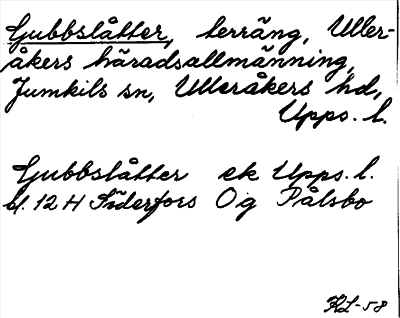 Gubbslåtter, terräng, Uller-
åkers häradsallmänning,
Jumkils sn, Ulleråkers hd,
Upps. l.
Gubbslåtter ek Upps. l.
bl. 12 H Söderfors Og Pålsbo
HL-58